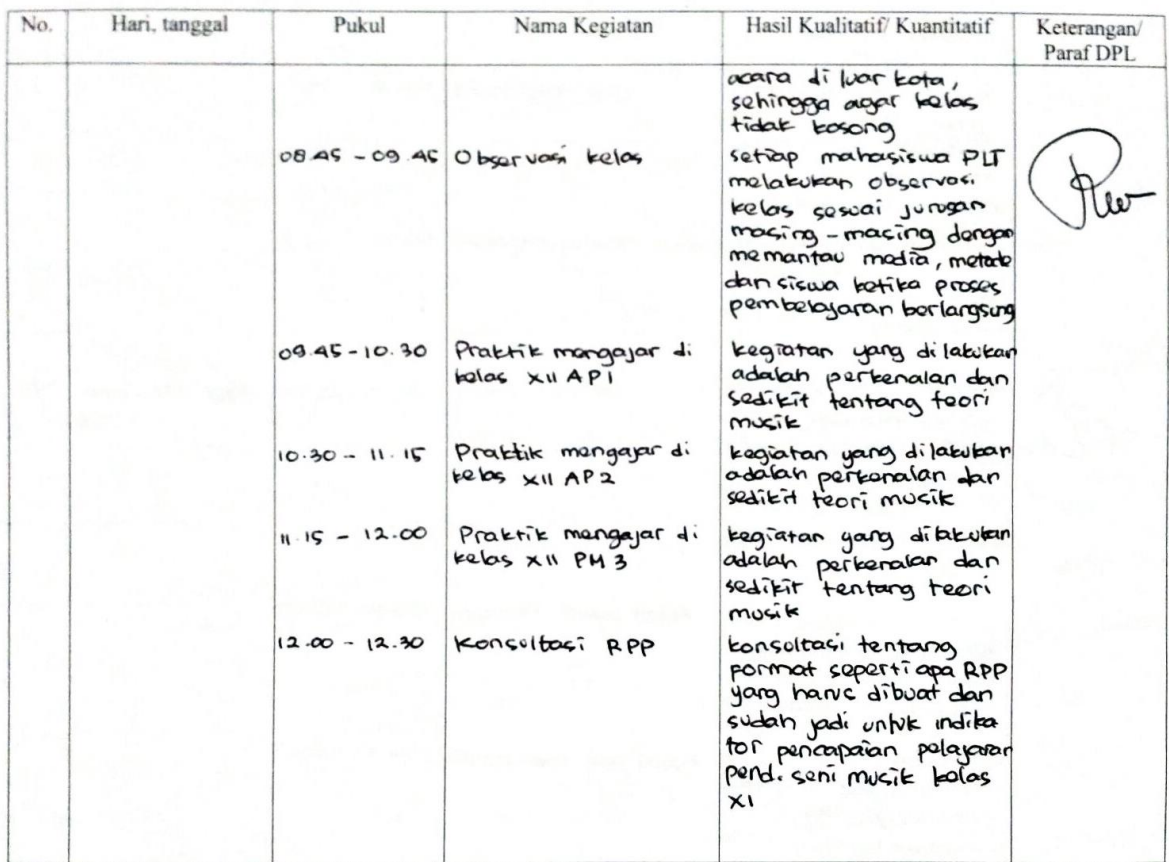 No. Hari, tanggal Pukul Nama Kegiatan Hasil Kualitatif/ Kuantitatif Keterangan/
Paraf DPL
acara di luar kota,
sehingga agar kelas
tidak kosong
08.45 - 09.45 Observasi kelas setiap mahasiswa PLT
melakukan observasi
kelas sesuai jurusan
masing - masing dengan
memantau media, metode
dan siswa ketika proses
pembelajaran berlangsung
09.45 - 10.30 Praktik mengajar di kegiatan yang dilakukan
kelas XII AP1 adalah perkenalan dan
sedikit tentang teori
musik
10.30 - 11.15 Praktik mengajar di kegiatan yang dilakukan
kelas XII AP2 adalah perkenalan dan
sedikit teori musik
11.15 - 12.00 Praktik mengajar di kegiatan yang dilakukan
kelas XII PM 3 adalah perkenalan dan
sedikit tentang teori
musik
12.00 - 12.30 Konsultasi RPP konsultasi tentang
format seperti apa RPP
yang harus dibuat dan
sudah jadi untuk indika
tor pencapaian pelajaran
pend. seni musik kelas
XI